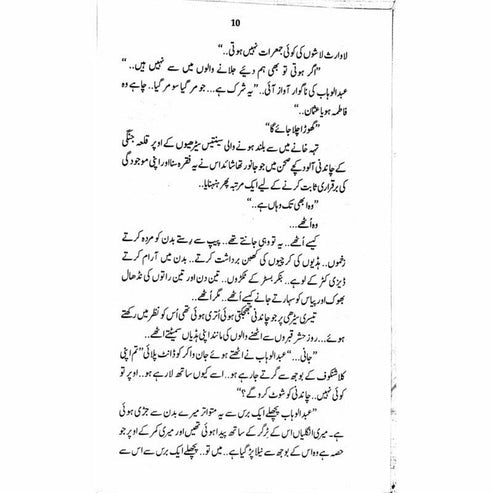 10
لاوارث لاشوں کی کوئی جمعرات نہیں ہوتی..“
”اگر ہوتی تو بھی ہم دیئے جلانے والوں میں سے نہیں ہیں..“
عبدالوہاب کی ناگوار آواز آئی..”یہ شرک ہے... جو مر گیا سو مر گیا.. چاہے وہ
فاطمہ ہو یا عثمان..“
”گھوڑا چلا جائے گا“
تہہ خانے میں سے بلند ہونے والی سینتیس سیڑھیوں کے اوپر قلعہ جنگی
کے چاندنی آلود کچے صحن میں جو جانور تھا شائد اس نے یہ فقرہ سنا اور اپنی موجودگی
کی برقراری ثابت کرنے کے لیے ایک مرتبہ پھر ہنہنایا..
”وہ ابھی تک وہاں ہے..“
وہ اُٹھے...
کیسے اُٹھے.. یہ تو وہی جانتے تھے.. پیپ سے رستے بدن کو مردہ کرتے
زخموں.. ہڈیوں کی کرچیوں کی چبھن برداشت کرتے.. بدن میں آرام کرتے
ڈیزی کٹر کے لوہے.. بنکر بسٹر کے ٹکڑوں.. تین دن اور تین راتوں کی نڈھال
بھوک اور پیاس کو سہارتے جانے کیسے اُٹھے.. مگر اُٹھے..
تیسری سیڑھی پر جو چاندنی جھجکتی ہوئی اُتری ہوئی تھی اُس کو نظر میں رکھتے
ہوئے... روز حشر قبروں سے اٹھنے والوں کی مانند اپنی ہڈیاں سمیٹتے اٹھے..
”جانی...“ عبدالوہاب نے اٹھتے ہوئے جان واکر کو ڈانٹ پلائی ”تم اپنی
کلاشنکوف کے بوجھ سے گرتے جا رہے ہو.. اسے کیوں ساتھ لا رہے ہو.. اوپر تو
کوئی نہیں.. چاندنی کو شوٹ کرو گے؟“
”عبدالوہاب پچھلے ایک برس سے یہ متواتر میرے بدن سے جڑی ہوئی
ہے۔ میری انگلیاں اس کے ٹرگر کے ساتھ پیدا ہوئی تھیں اور میری کمر کے اوپر جو
حصہ ہے وہ اس کے بوجھ سے نیلا پڑ گیا ہے.. میں تو.. پچھلے ایک برس سے اس سے